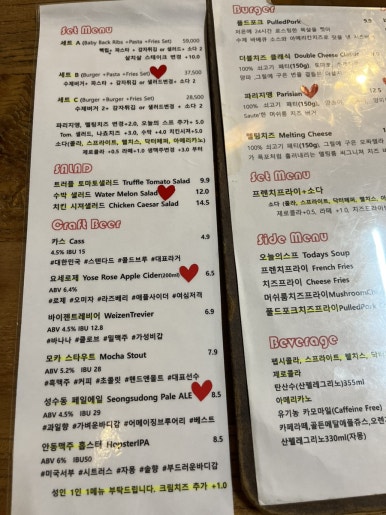 Set Menu
세트 A (Baby Back Ribs +Pasta +Fries Set) 59,000
백립+ 파스타 + 감자튀김 or 샐러드+ 소다 2
살치살 스테이크 변경 +10.0
세트 B (Burger +Pasta +Fries Set) 37,500
수제버거+ 파스타 + 감자튀김 or 샐러드변경+ 소다 2
세트 C (Burger +Burger +Fries Set) 28,500
수제버거 2+ 감자튀김 or 샐러드변경+ 소다 2
파리지앵, 멜팅치즈 변경 +2.0, 오늘의 스프 추가+ 5.0
Tom. 샐러드, 나쵸치즈 +3.0, 수박 +4.0 치킨시져+5.0
소다(콜라, 스프라이트, 웰치스, 닥터페퍼, 아메리카노)
제로콜라 +0.5 라떼+1.0, 생맥주변경+3.0 부터
SALAD
트러플 토마토샐러드 Truffle Tomato Salad 9.9
수박 샐러드 Water Melon Salad 12.0
치킨 시져샐러드 Chicken Caesar Salad 14.5
Craft Beer
카스 Cass 4.9
4.5% IBU 15
#대한민국 #스탠다드 #콜드브루 #대표라거
요세로제 Yose Rose Apple Cider(200ml) 6.5
ABV 6.4%
#로제 #오미자 #라즈베리 #애플사이더 #여심저격
바이젠트레비어 WeizenTrevier 6.9
ABV 4.5% IBU 12.8
#바나나 #클로브 #밀맥주 #가성비갑
모카 스타우트 Mocha Stout 7.9
ABV 5.2% IBU 28
#흑맥주 #커피 #초콜릿 #핸드앤몰트 #대표선수
성수동 페일에일 Seongsudong Pale ALE 8.5
ABV 4.5% IBU 29
#과일향 #가벼운바디감 #어메이징브루어리 #베스트
안동맥주 홉스터 HopsterIPA 8.5
ABV 6% IBU50
#미국서부 #시트러스 #자몽 #솔향 #부드러운바디감
성인 1인 1메뉴 부탁드립니다, 크림치즈 추가 +1.0
Burger
풀드포크 PulledPork 9.9
더블치즈 클래식 Double Cheese
100% 쇠고기 패티(150g),
파리지앵 Parisian
100% 쇠고기 패티(150g),
멜팅치즈 Melting Cheese
100% 쇠고기 패티(150g),
Set Menu
프렌치프라이+소다
소다 (콜라, 스프라이트, 웰치스, 닥터페퍼,
제로콜라+0.5, 라떼 +1.0,
Side Menu
오늘의스프 Todays Soup
프렌치프라이 French Fries
치즈프라이 Cheese Fries
머쉬룸치즈프라이
풀드포크치즈프라이
Beverage
펩시콜라, 스프라이트, 웰치스, 닥
제로콜라
탄산수(산펠레그리노)355ml
아메리카노
유기농 카모마일(Caffeine Free)
카페라떼,
산펠레그리노330ml(자몽)